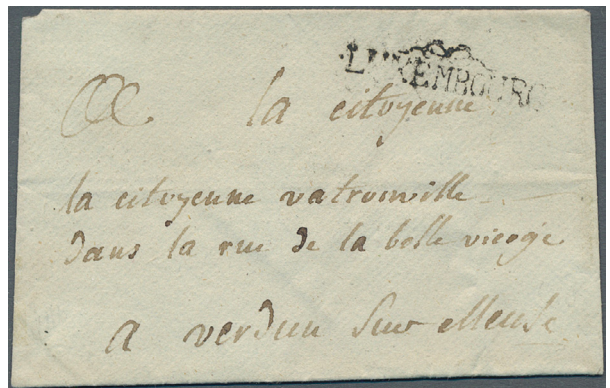 LUXEMBOURG
A la citoyenne
la citoyenne vatronville
dans la rue de la belle vierge
a verdun sur Meuse